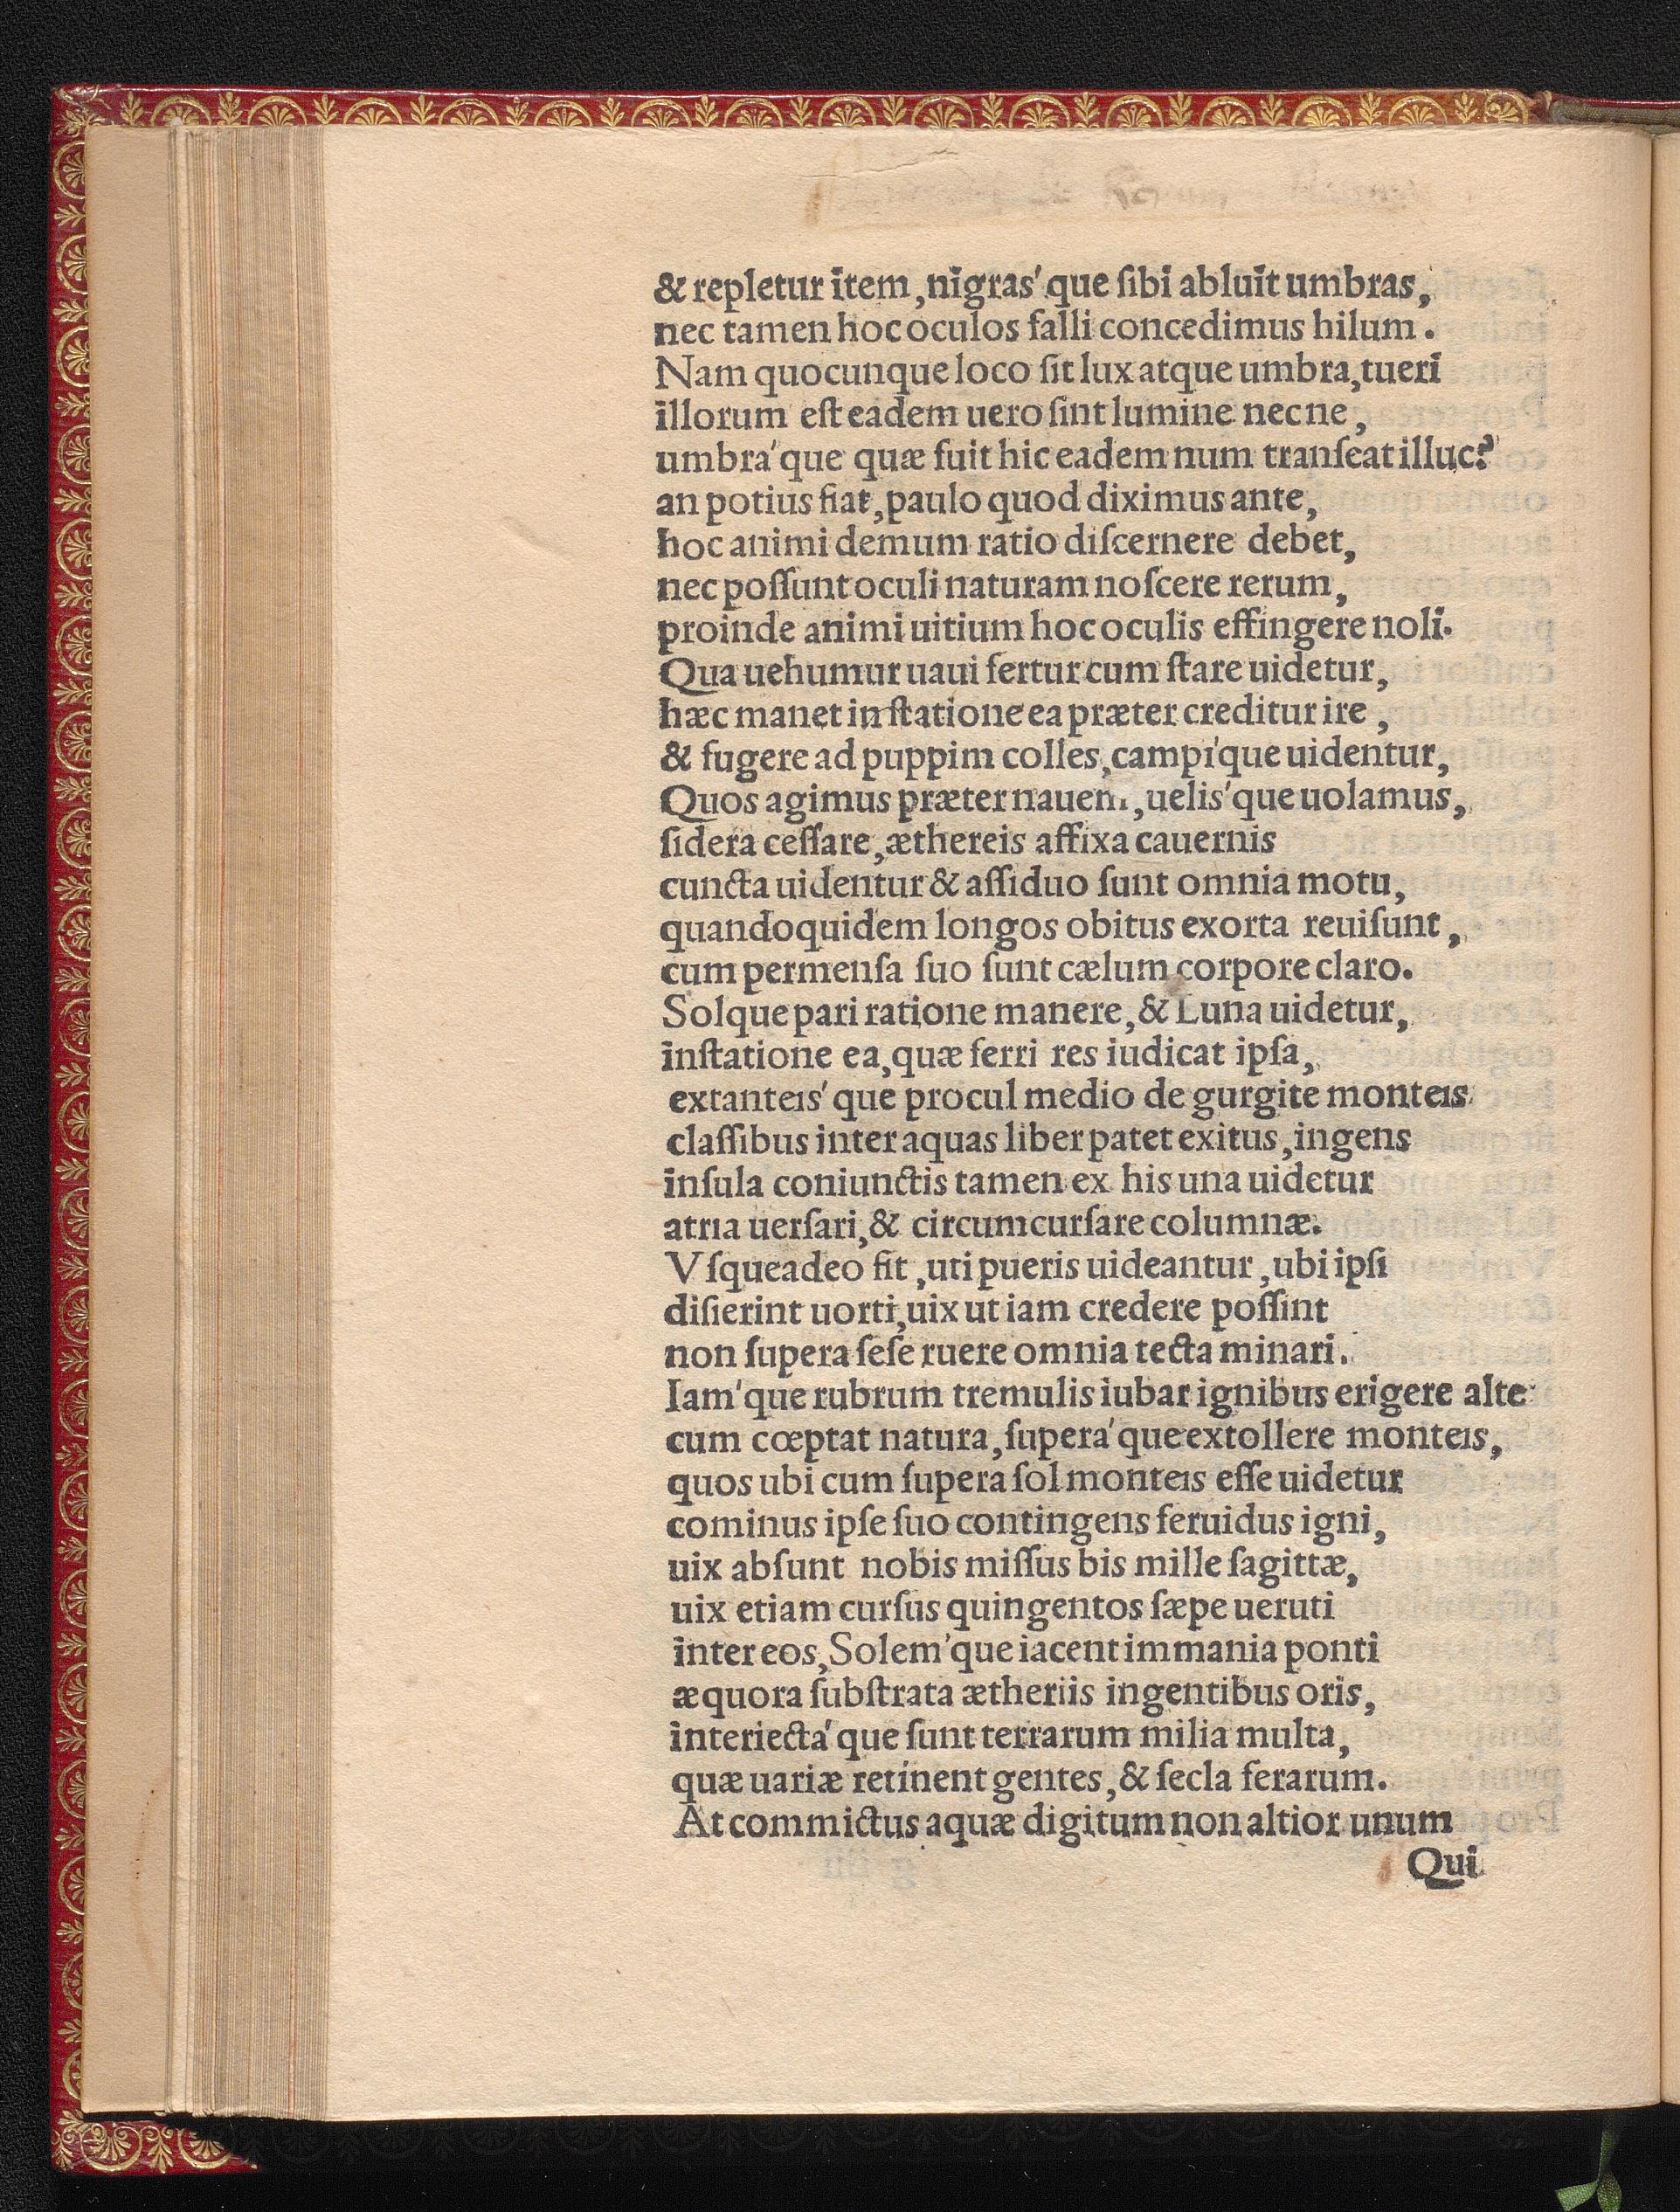 & repletur item, nigras'que ſibi abluit umbras,
nec tamen hoc oculos falli concedimus hilum.
Nam quocunque loco ſit lux atque umbra, tueri
illorum eſt eadem uero ſint lumine necne,
umbra'que quæ fuit hic eadem num tranſeat illuc?
an potius fiat, paulo quod diximus ante,
hoc animi demum ratio diſcernere debet,
nec poſſunt oculi naturam noſcere rerum,
proinde animi uitium hoc oculis effingere noli.
Qua uehumur uaui fertur cum ſtare uidetur,
hæc manet in ſtatione ea præter creditur ire,
& fugere ad puppim colles, campi'que uidentur,
Quos agimus præter nauem, uelis'que uolamus,
ſidera ceſſare, æthereis affixa cauernis
cuncta uidentur & aſſiduo ſunt omnia motu,
quandoquidem longos obitus exorta reuiſunt,
cum permenſa ſuo ſunt cælum corpore claro.
Solque pari ratione manere, & Luna uidetur,
inſtatione ea, quæ ferri res iudicat ipſa,
extanteis'que procul medio de gurgite monteis
claſſibus inter aquas liber patet exitus, ingens
inſula coniunctis tamen ex his una uidetur
atria uerſari, & circumcurſare columnæ.
Vſqueadeo fit, uti pueris uideantur, ubi ipſi
diſierint uorti, uix ut iam credere poſſint
non ſupera ſeſe ruere omnia tecta minari.
Iam'que rubrum tremulis iubar ignibus erigere alte
cum cœptat natura, ſupera'que extollere monteis,
quos ubi cum ſupera ſol monteis eſſe uidetur
cominus ipſe ſuo contingens feruidus igni,
uix abſunt nobis miſſus bis mille ſagittæ,
uix etiam curſus quingentos ſæpe ueruti
inter eos, Solem'que iacent immania ponti
æquora ſubſtrata ætheriis ingentibus oris,
interiecta'que ſunt terrarum milia multa,
quæ uariæ retinent gentes, & ſecla ferarum.
At commictus aquæ digitum non altior unum
Qui